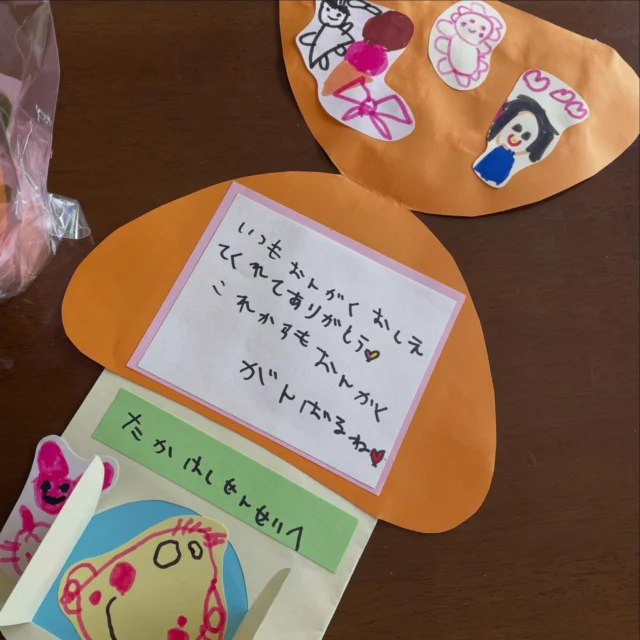 いつもおんがくおしえ
てくれてありがとう
これからもおんがく
がんばるね
たかはしせんせいへ